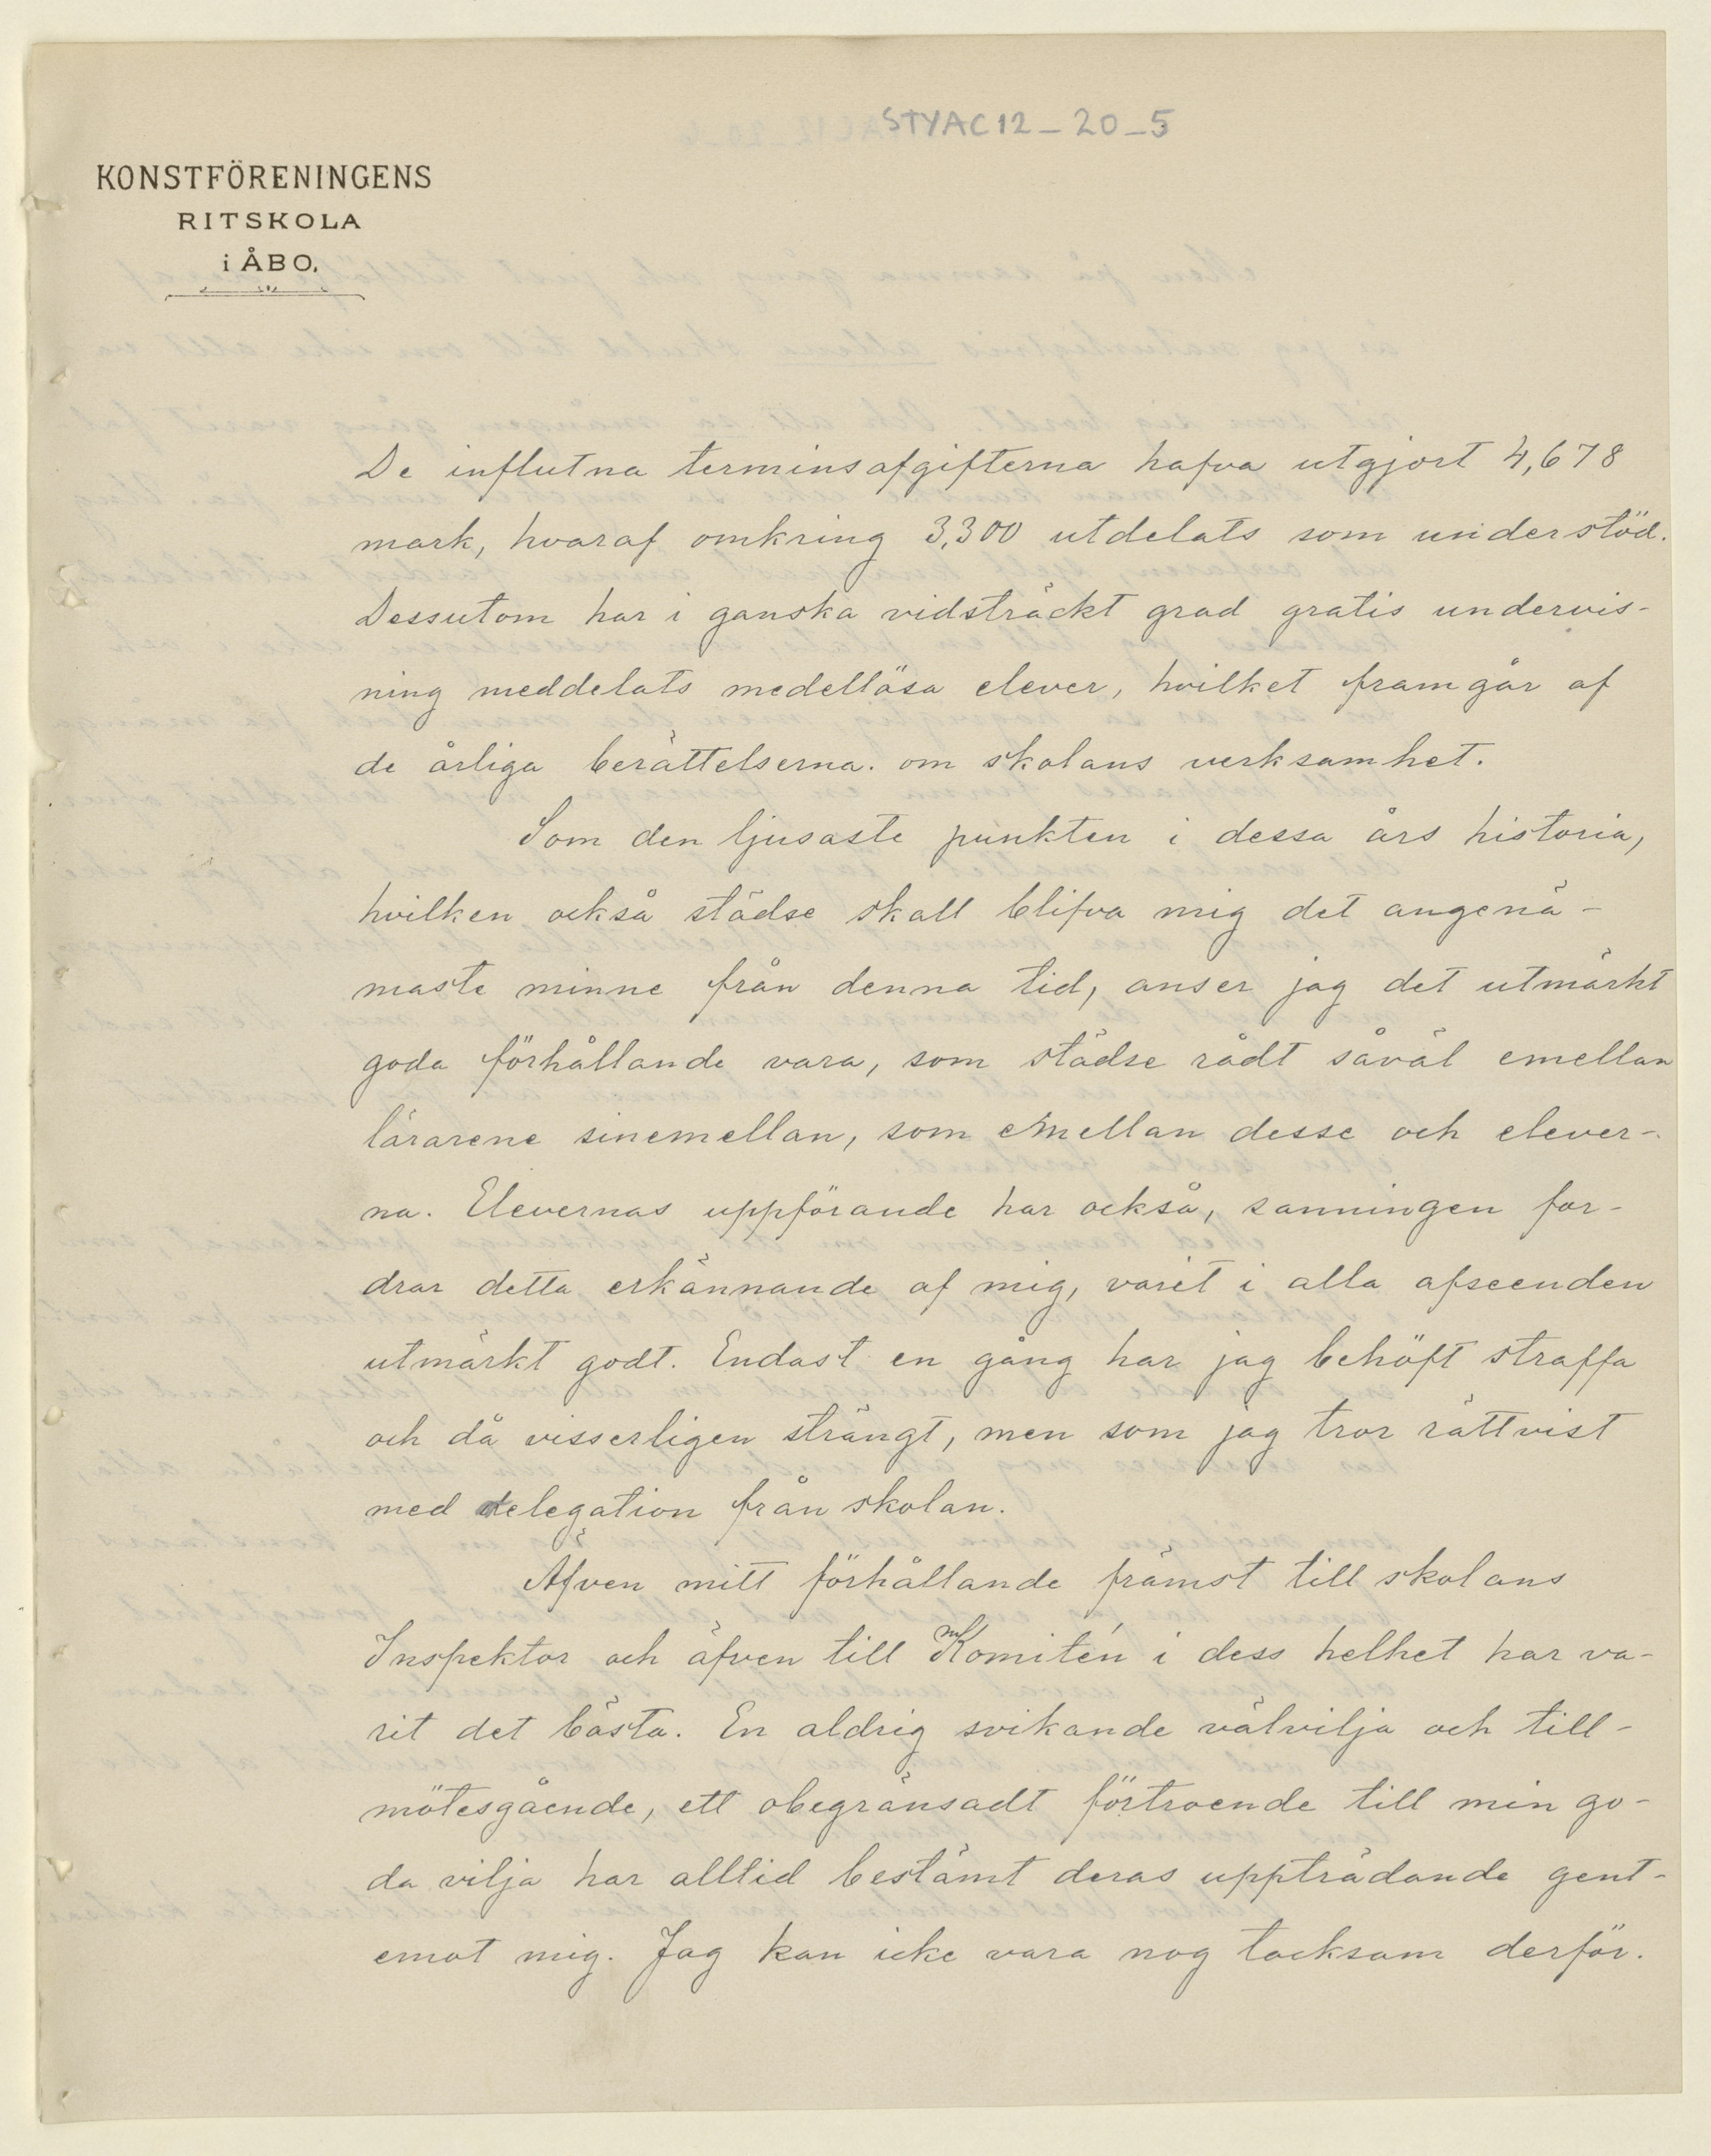 STYAC12_20_5
KONSTFÖRENINGENS
RITSKOLA
i ÅBO.
De influtna terminsafgifterna hafva utgjort 4,678
mark, hvaraf omkring 3,300 utdelats som understöd.
Dessutom har i ganska vidsträckt grad gratis undervis-
ning meddelats medellösa elever, hvilket framgår af
de årliga berättelserna. om skolans verksamhet.
Som den ljusaste punkten i dessa års historia,
hvilken också städse skall blifva mig det angenä-
maste minne från denna tid, anser jag det utmärkt
goda förhållande vara, som städse rådt såväl emellan
lärarene sinemellan, som emellan desse och elever-
na. Elevernas uppförande har också, sanningen for-
drar detta erkännande af mig, varit i alla afseenden
utmärkt godt. Endast en gång har jag behöft straffa
och då visserligen strängt, men som jag tror rättvist
med delegation från skolan.
Äfven mitt förhållande främst till skolans
Inspektor och äfven till Komitén i dess helhet har va-
rit det bästa. En aldrig svikande välvilja och till-
mötesgående, ett obegränsadt förtroende till min go-
da vilja har alltid bestämt deras uppträdande gent-
emot mig. Jag kan icke vara nog tacksam derför.